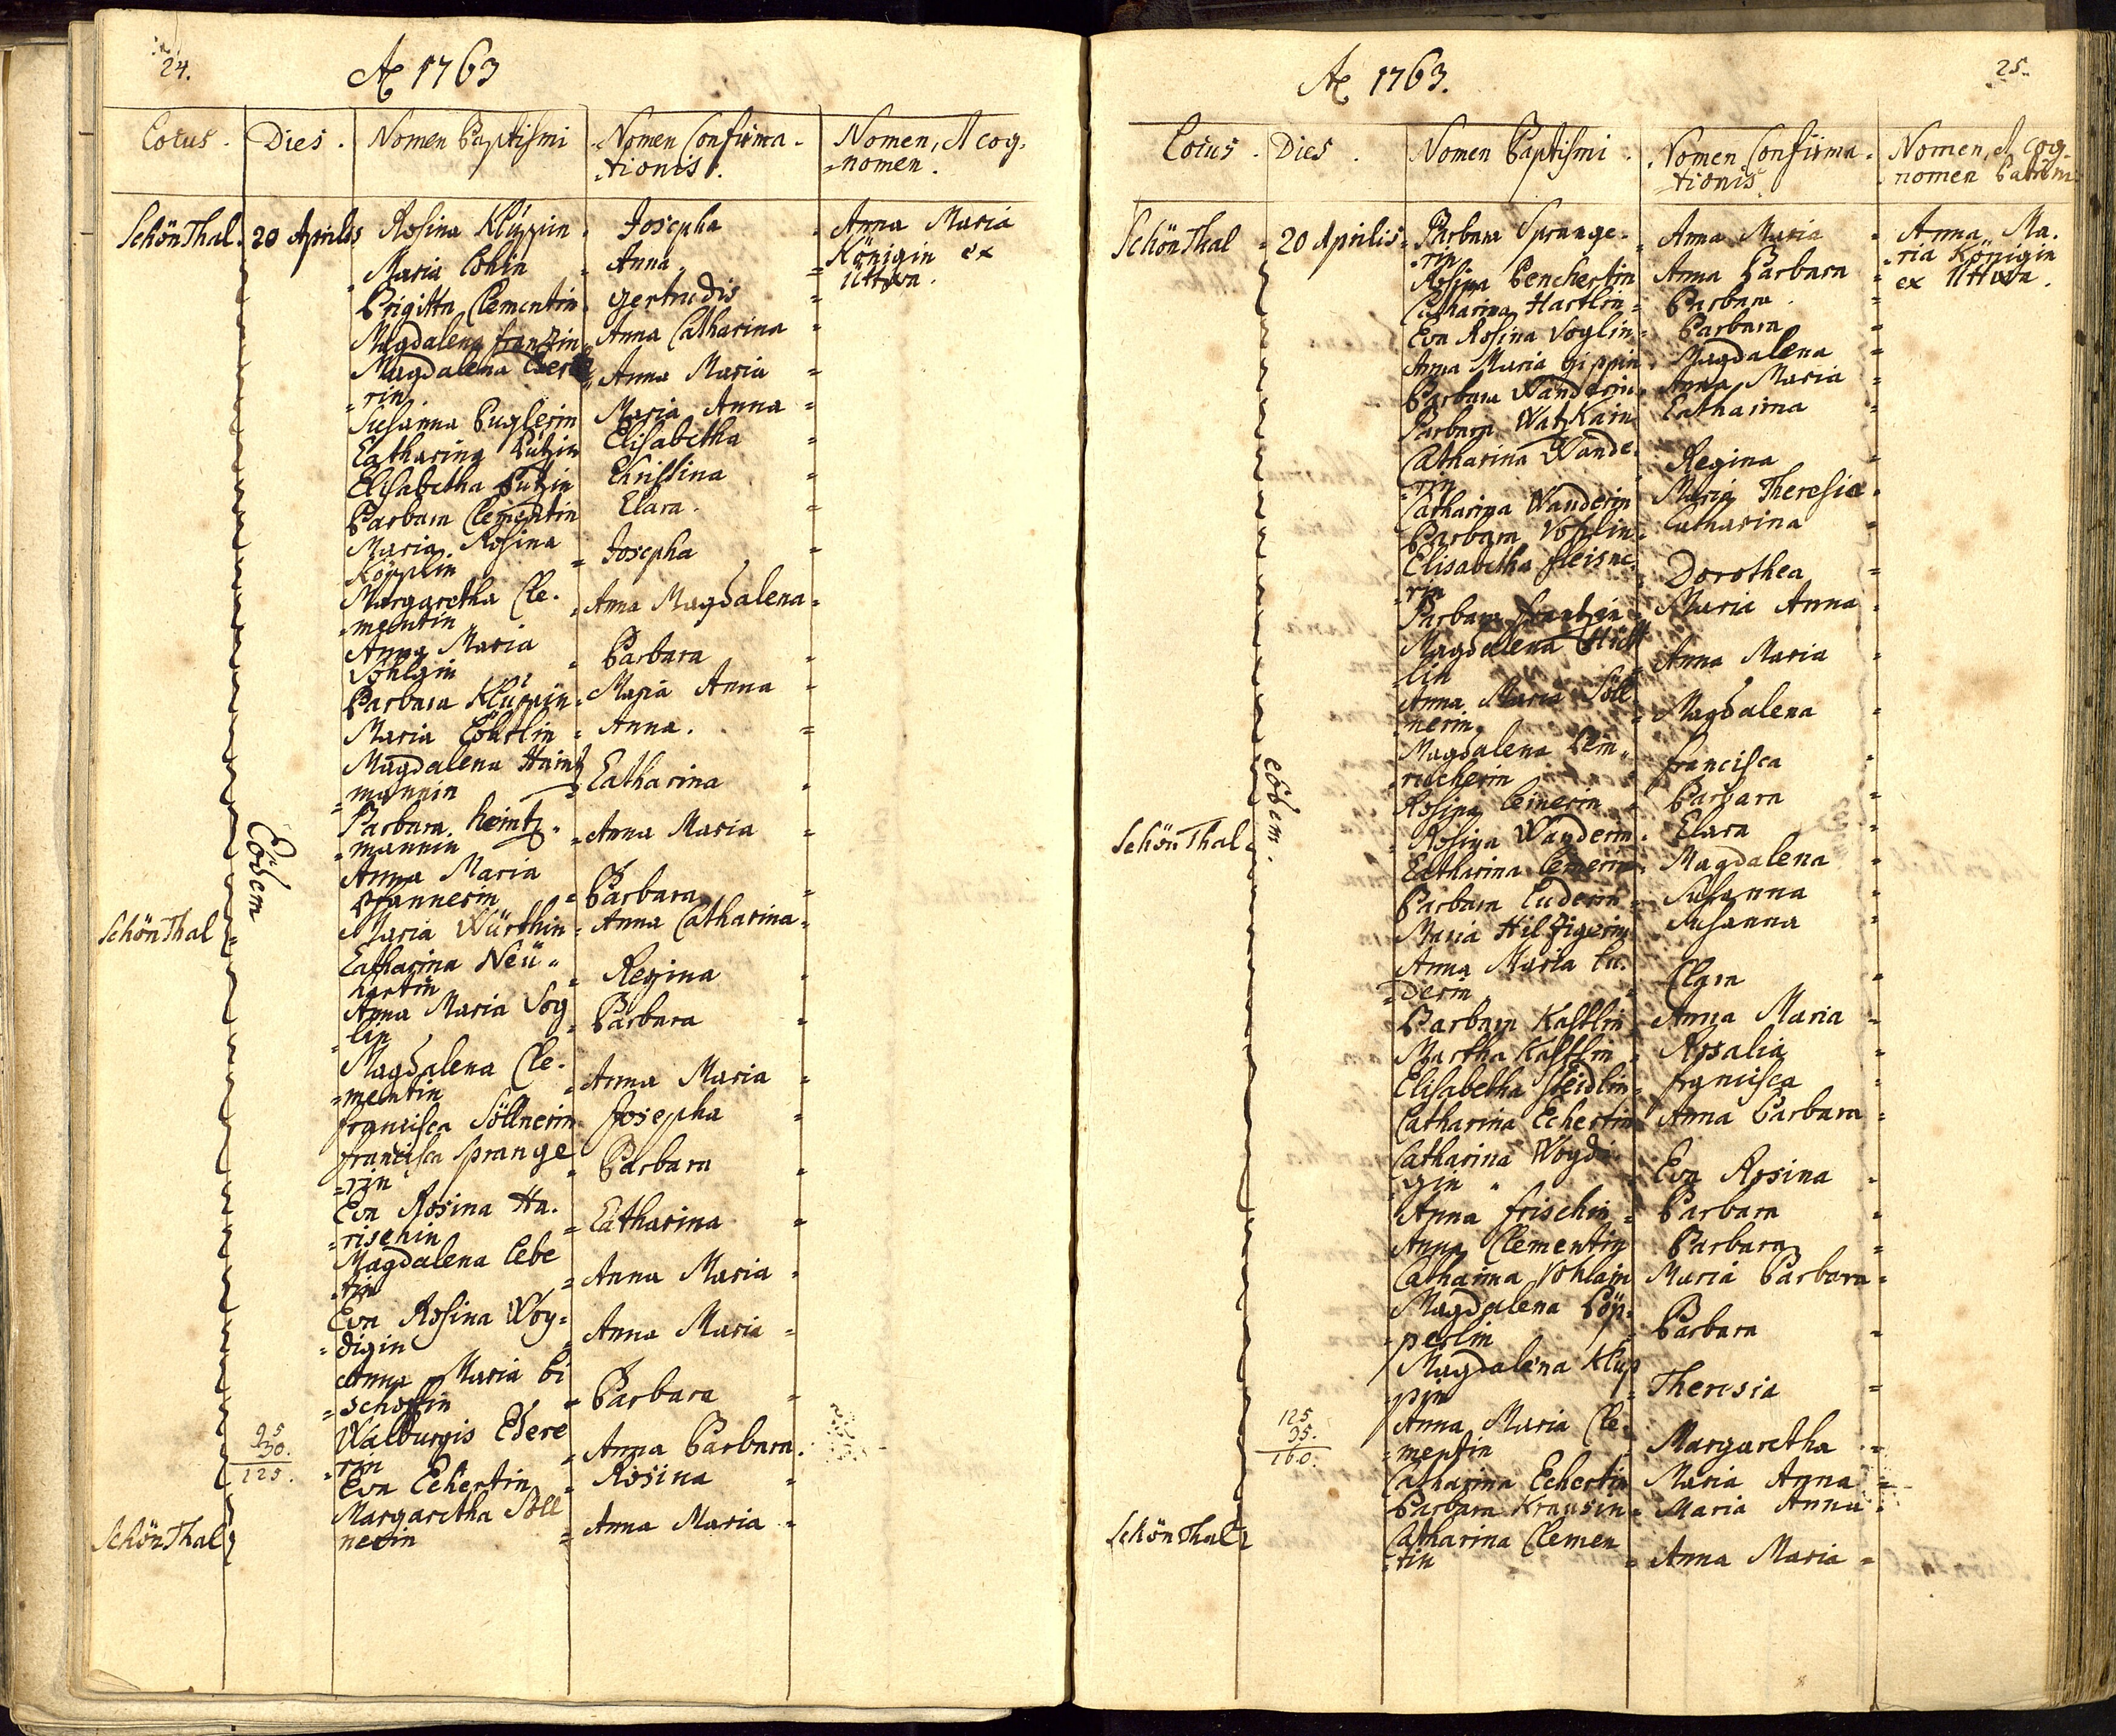 24.
Aô 1763
Locus. Dies. Nomen Baptismi Nomen Confirma-
-tionis. Nomen, et cog-
-nomen.
SchönThal. 20 Aprilis Rosina Klüppin. Josepha Anna Maria
Maria Löhin Anna Königin ex
Brigitta Clementin. Gertrudis Uttwa.
Magdalena Frantzin Anna Catharina
Magdalena Ebers
-rin Anna Maria
Susanna Puglerin Maria Anna
Catharina Putzin Elisabetha
Elisabetha Putzin Christina
Barbara Clementin Clara.
Maria Rosina
Köpplin Josepha
Margaretha Cle-
-mentin Anna Magdalena
Anna Maria
Vohlgin Barbara
Barbara Klüppin Maria Anna
Maria Anna.
Magdalena Haintz
-mannin Catharina
Barbara Heintz-
-mannin Anna Maria
Eödem
Anna Maria
Pfannerin Barbara
SchönThal Maria Würthin Anna Catharina
Catharina Neü-
hartin Regina
Anna Maria Vog
-lin Barbara
Magdalena Cle-
-mentin Anna Maria
Francisca Söllnerin Josepha
Francisca Sprange
-rin Barbara
Eva Rosina Ha-
-rischin Catharina
Magdalena Lebe
-tin Anna Maria
Eva Rosina Woy-
-digin Anna Maria
Anna Maria Bi
-schoffin Barbara
95
30.
125.
Walburgis Edere
-rin Anna Barbara.
Eva Echertin Rosina
Margaretha Söll
SchönThal nerin Anna Maria
25.
Aô 1763.
Locus. Dies. Nomen Baptismi. Nomen Confirma-
-tionis Nomen, et cog-
nomen Patrini
SchönThal 20 Aprilis Barbara Sprange-
-rin Anna Maria Anna Ma-
-ria Königin
ex Uttwa.
Rosina Penchertin Anna Barbara
Catharina Hartlin Barbara
Eva Rosina Voglin Barbara
Anna Maria Gippin Magdalena
Barbara Wanderin Anna Maria
Barbara WatzKain Catharina
Catharina Wande-
-rin Regina
Catharina Wanderin Maria Theresia
Barbara Vohlin Catharina
Elisabetha Fleisne-
-rin Dorothea
Barbara Frantzin Maria Anna
Magdalena
-lin Anna Maria
Anna Maria Söll
nerin Magdalena
Magdalena Lem-
-richerin Francisca
Rosina Leinerin Barbara
eödem.
SchönThal Rosina Wanderin Clara
Catharina Lemerin Magdalena
Barbara Luderin Susanna
Maria Hilfigerin Susanna
Anna Maria Lu-
-derin Clara
Barbara Kastlin Anna Maria
Martha Kastlin Rosalia
Elisabetha Steidlin Francisca
Catharina Echertin Anna Barbara
Catharina Woydi-
gin Eva Rosina
Anna Frischin Barbara
Anna Clementin Barbara
Catharina Vohlgin Maria Barbara
Magdalena Pöp-
-perlin Barbara
Magdalena Klup
-pin Theresia
125.
35.
160.
Anna Maria Cle-
-mentin Margaretha
Catharina Echertin Maria Anna
Barbara Krausin Maria Anna
SchönThal Catharina Clemen
-tin Anna Maria